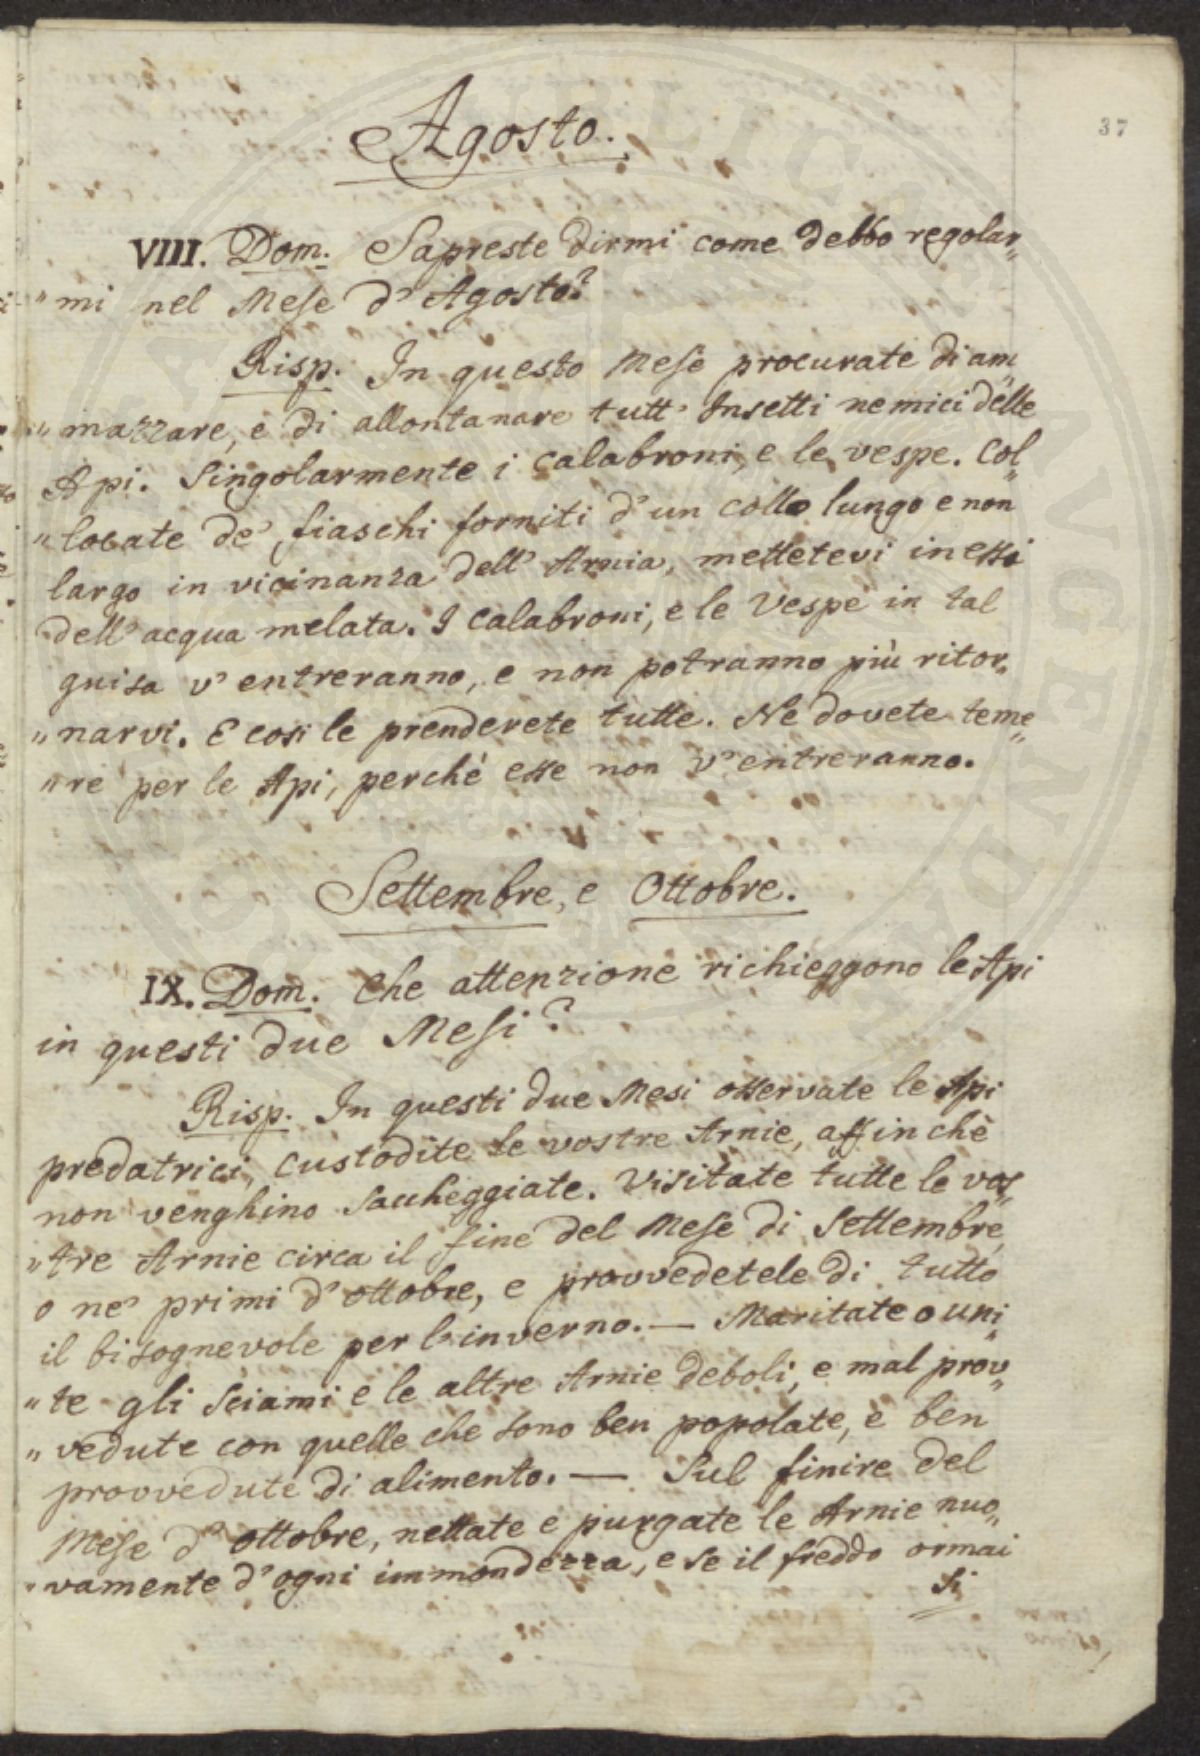 37
Agosto.
VIII. Dom. Sapreste dirmi come debbo regolar„
„mi nel Mese d'Agosto?
Risp. In questo Mese procurate di am„
„mazzare, e di allontanare tutt' Insetti nemici delle
Api. Singolarmente i calabroni, e le vespe. Col„
„locate de' fiaschi forniti d'un collo lungo e non
largo in vicinanza dell'Arnia, mettetevi in essi
dell'acqua melata. I calabroni, e le Vespe in tal
guisa v'entreranno, e non potranno più ritor„
„narvi. E così le prenderete tutte. Ne dovete teme„
„re per le Api, perchè esse non v'entreranno.
Settembre, e Ottobre.
IX. Dom. Che attenzione richieggono le Api
in questi due Mesi?
Risp. In questi due Mesi osservate le Api
predatrici, custodite le vostre Arnie, affinchè
non venghino saccheggiate. Visitate tutte le vos„
„tre Arnie circa il fine del Mese di Settembre,
o ne' primi d'ottobre, e provvedetele di tutto
il bisognevole per l'inverno. — Maritate o uni„
„te gli sciami e le altre Arnie deboli, e mal prov„
„vedute con quelle che sono ben popolate, e ben
provvedute di alimento. — Sul finire del
Mese d'ottobre, nettate e purgate le Arnie nuo„
„vamente d'ogni immondezza, e se il freddo ormai
si